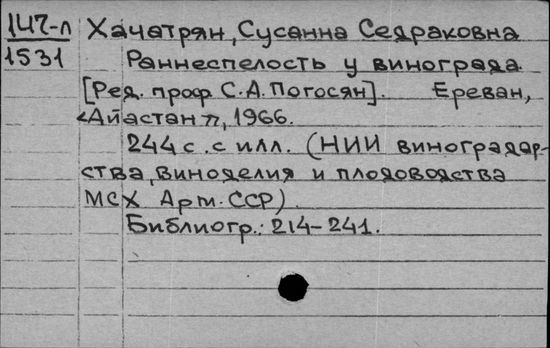 147-л Хачатрян, Сусанна Седраковна
1531 Раннеспелость у винограда
[Ред. проф С.А. Погосян]. Ереван,
"Айастан", 1966.
244 с. с илл. (НИИ виноградар-
ства, виноделия и плодоводства
МСХ Арм. ССР)
Библиогр.: 214-241.